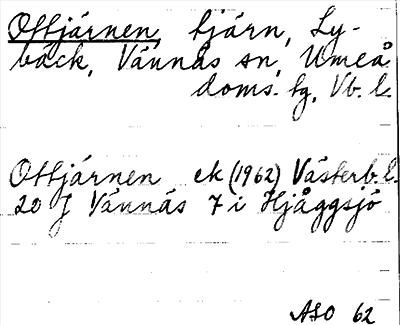 Ottjärnen, tjärn, Ly-
bäck, Vännäs sn, Umeå
doms. tg, Vb. l.
Ottjärnen ek (1962) Västerb. l.
20 J Vännäs 7 i Hjåggsjö
ASO 62